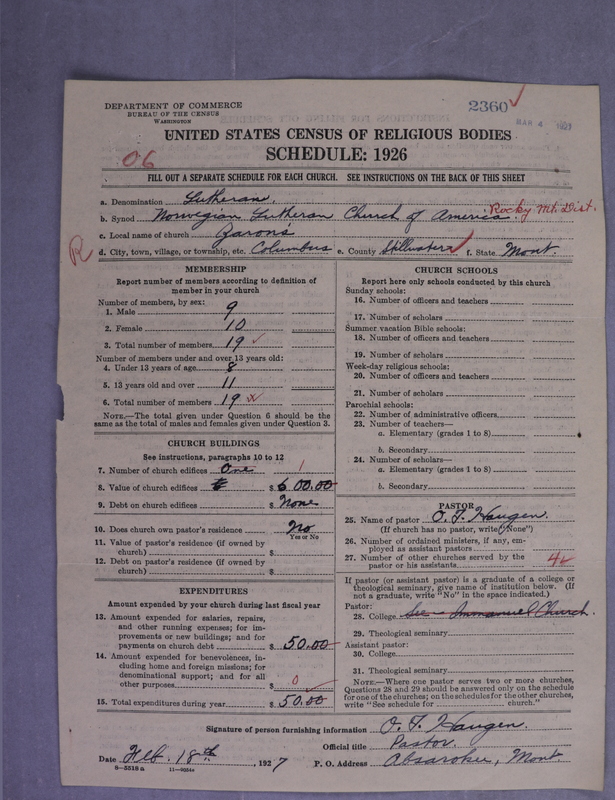 DEPARTMENT OF COMMERCE
BUREAU OF THE CENSUS
WASHINGTON
2360
MAR 4 1927
UNITED STATES CENSUS OF RELIGIOUS BODIES
06
SCHEDULE: 1926
FILL OUT A SEPARATE SCHEDULE FOR EACH CHURCH. SEE INSTRUCTIONS ON THE BACK OF THIS SHEET
a. Denomination Lutheran
b. Synod Norwegian Lutheran Church of America Rocky Mt. Dist.
c. Local name of church Zarons
R
d. City, town, village, or township, etc. Columbus e. County Stillwater f. State Mont.
MEMBERSHIP
Report number of members according to definition of
member in your church
Number of members, by sex:
1. Male 9
2. Female 10
3. Total number of members 19
Number of members under and over 13 years old:
4. Under 13 years of age 8
5. 13 years old and over 11
6. Total number of members 19
NOTE.—The total given under Question 6 should be the
same as the total of males and females given under Question 3.
CHURCH BUILDINGS
See instructions, paragraphs 10 to 12
7. Number of church edifices One 1
8. Value of church edifices $ 600.00
9. Debt on church edifices $ None
10. Does church own pastor's residence No
Yes or No
11. Value of pastor's residence (if owned by
church) $
12. Debt on pastor's residence (if owned by
church) $
EXPENDITURES
Amount expended by your church during last fiscal year
13. Amount expended for salaries, repairs,
and other running expenses; for im-
provements or new buildings; and for
payments on church debt $ 50.00
14. Amount expended for benevolences, in-
cluding home and foreign missions; for
denominational support; and for all
other purposes $ 0
15. Total expenditures during year $ 50.00
CHURCH SCHOOLS
Report here only schools conducted by this church
Sunday schools:
16. Number of officers and teachers
17. Number of scholars
Summer vacation Bible schools:
18. Number of officers and teachers
19. Number of scholars
Week-day religious schools:
20. Number of officers and teachers
21. Number of scholars
Parochial schools:
22. Number of administrative officers
23. Number of teachers—
a. Elementary (grades 1 to 8)
b. Secondary
24. Number of scholars—
a. Elementary (grades 1 to 8)
b. Secondary
PASTOR
25. Name of pastor O. F. Haugen
(If church has no pastor, write "None")
26. Number of ordained ministers, if any, em-
ployed as assistant pastors
27. Number of other churches served by the
pastor or his assistants 4
If pastor (or assistant pastor) is a graduate of a college or
theological seminary, give name of institution below. (If
not a graduate, write "No" in the space indicated.)
Pastor:
28. College See Immanuel Church.
29. Theological seminary
Assistant pastor:
30. College
31. Theological seminary
NOTE.—Where one pastor serves two or more churches,
Questions 28 and 29 should be answered only on the schedule
for one of the churches; on the schedules for the other churches,
write "See schedule for church."
Signature of person furnishing information O. F. Haugen.
Official title Pastor.
Date Feb. 18th, 1927 P. O. Address Absarokee, Mont
8—5518a